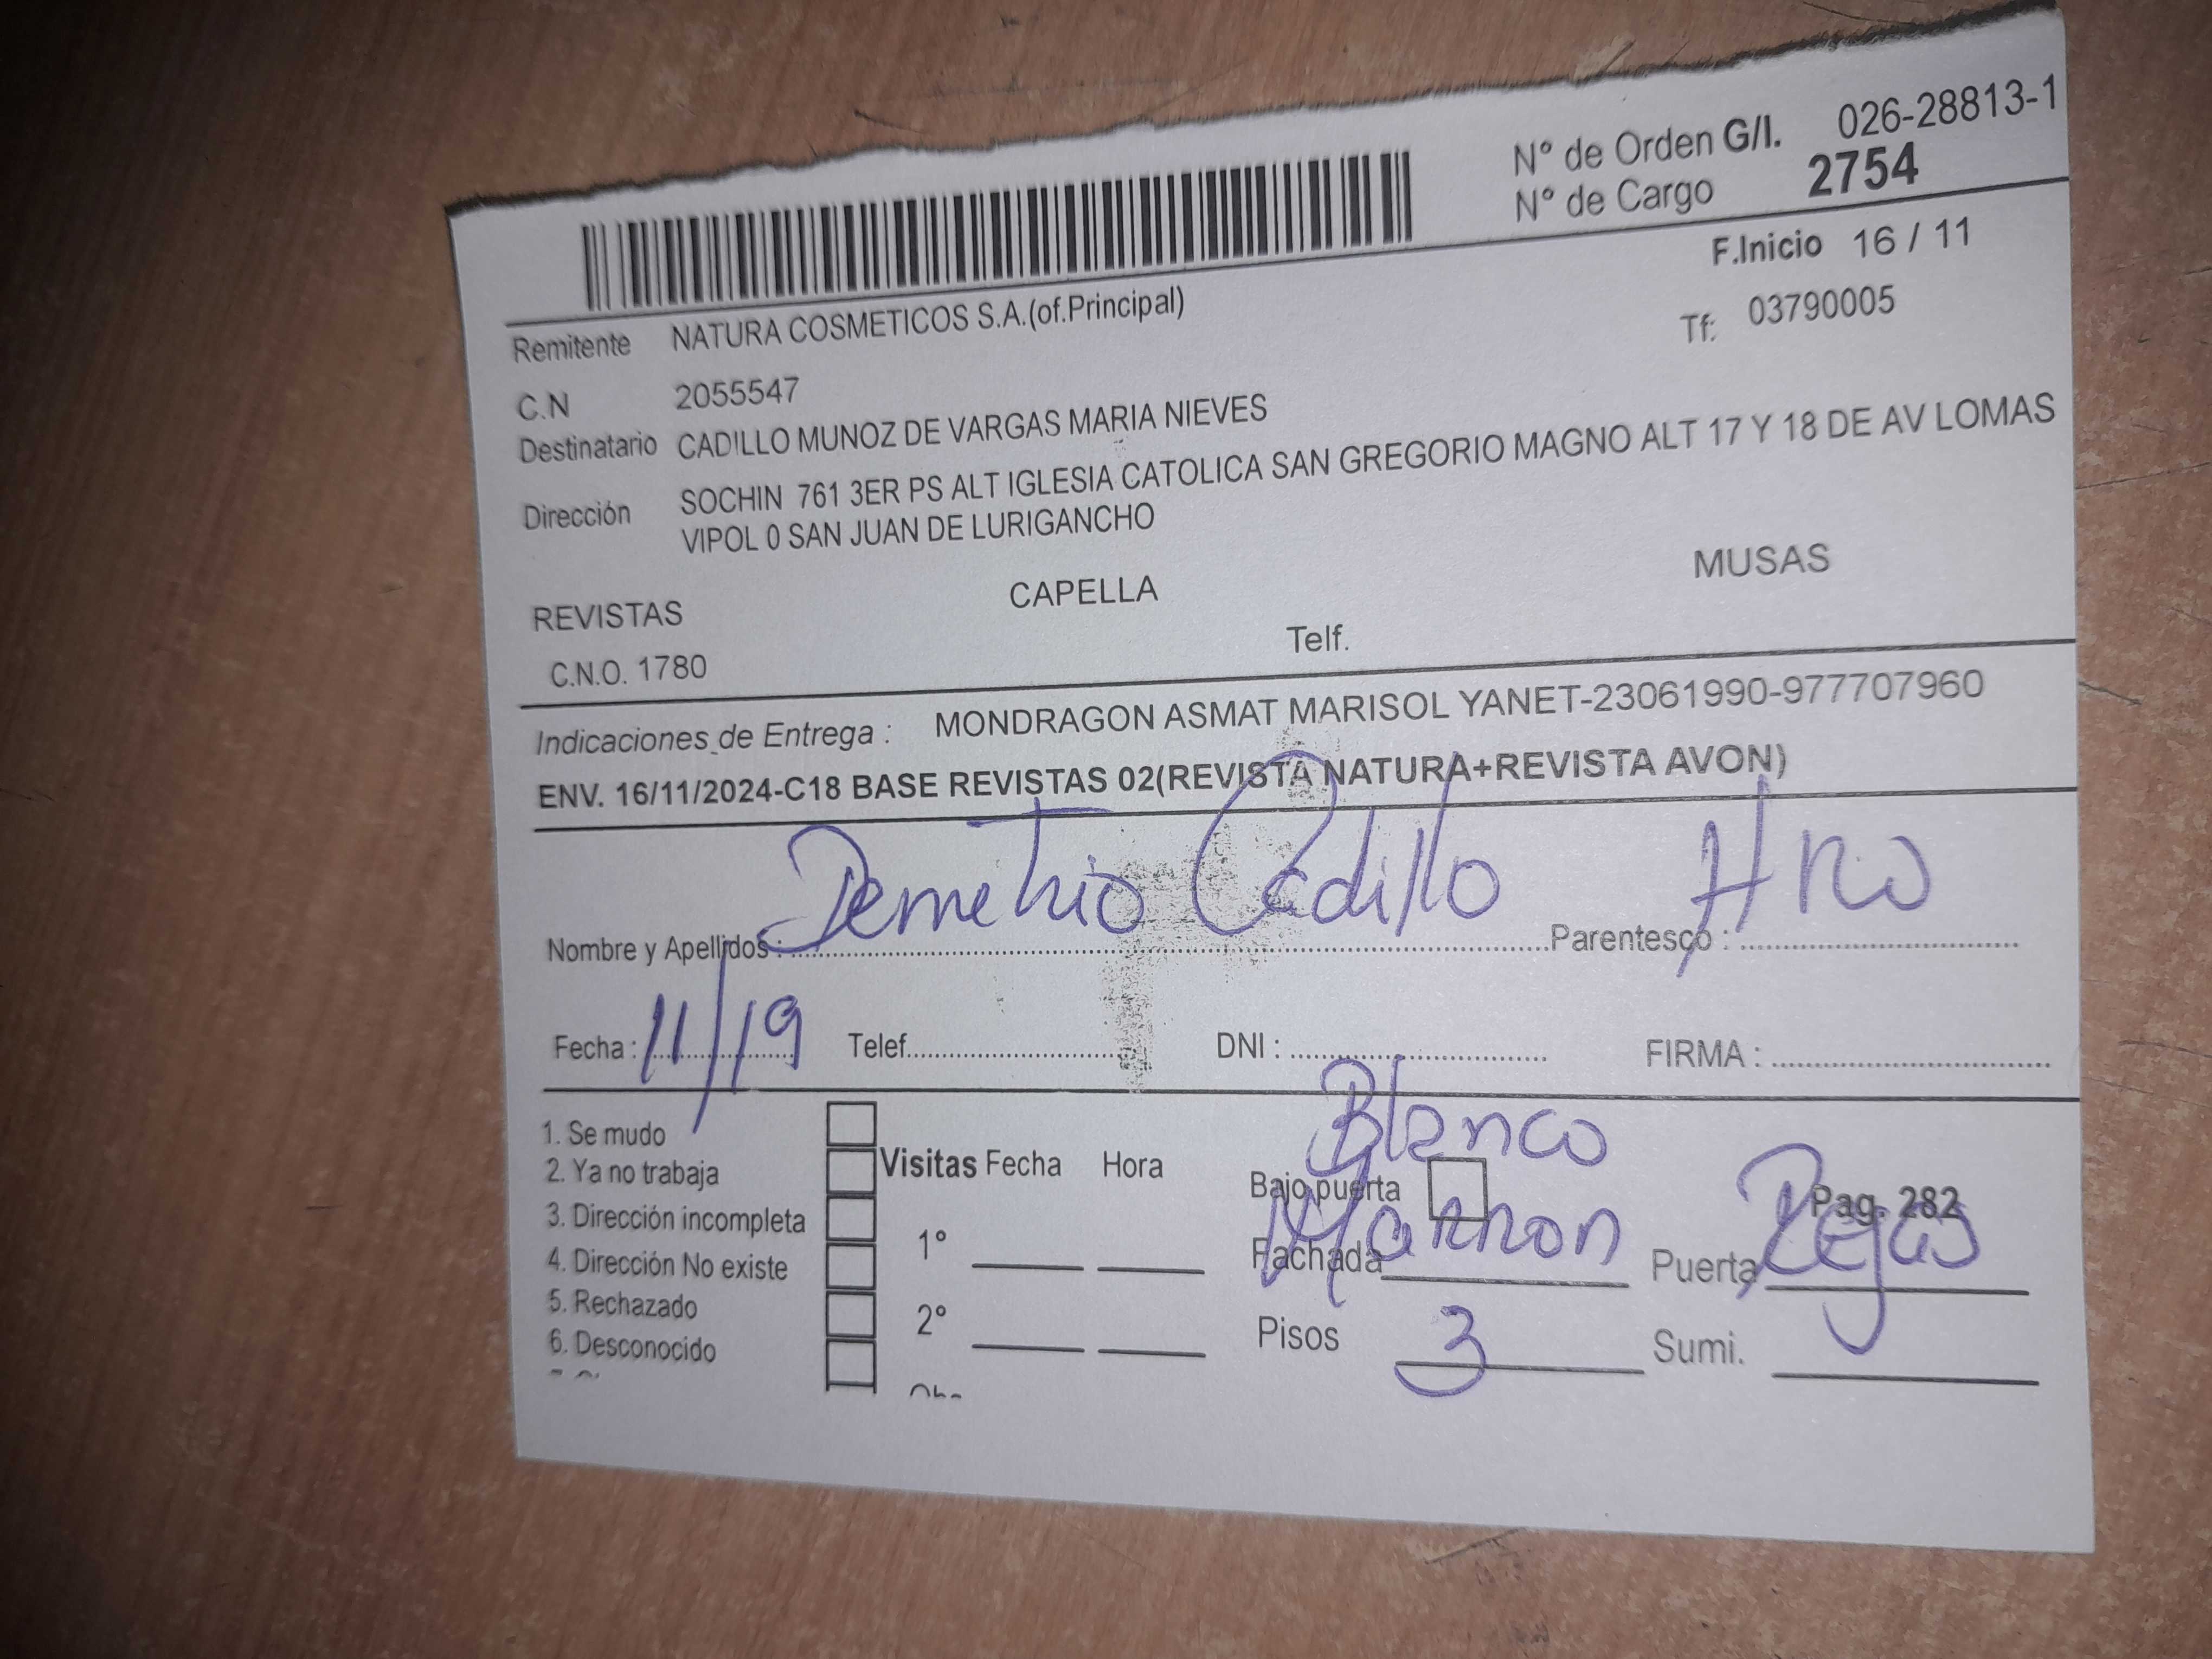 N° de Orden G/I. 026-28813-1
N° de Cargo 2754
F.Inicio 16 / 11
Remitente NATURA COSMETICOS S.A.(of.Principal)
Tf: 03790005
C.N 2055547
Destinatario CADILLO MUNOZ DE VARGAS MARIA NIEVES
Dirección SOCHIN 761 3ER PS ALT IGLESIA CATOLICA SAN GREGORIO MAGNO ALT 17 Y 18 DE AV LOMAS
VIPOL 0 SAN JUAN DE LURIGANCHO
REVISTAS CAPELLA MUSAS
C.N.O. 1780 Telf.
Indicaciones de Entrega : MONDRAGON ASMAT MARISOL YANET-23061990-977707960
ENV. 16/11/2024-C18 BASE REVISTAS 02(REVISTA NATURA+REVISTA AVON)
Nombre y Apellidos : Demetrio Cadillo Parentesco : Hno
Fecha : 11/19 Telef. DNI : FIRMA :
1. Se mudo
2. Ya no trabaja
3. Dirección incompleta
4. Dirección No existe
5. Rechazado
6. Desconocido
Visitas Fecha Hora
1°
2°
Blanco
Bajo puerta
Pag. 282
Fachada Marron Puerta Rejas
Pisos 3 Sumi.